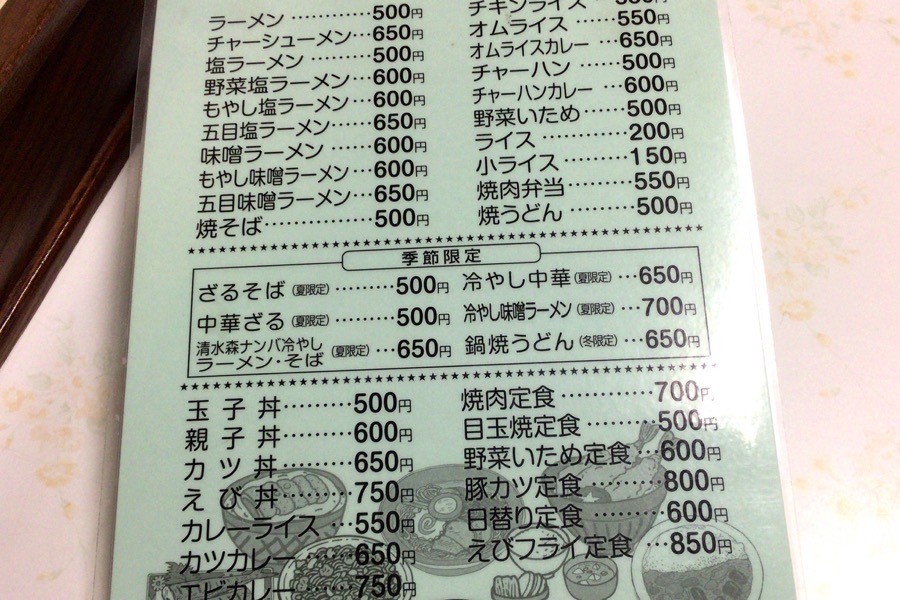 ラーメン………………500円
チャーシューメン…650円
塩ラーメン…………500円
野菜塩ラーメン…600円
もやし塩ラーメン…600円
五目塩ラーメン……650円
味噌ラーメン………600円
もやし味噌ラーメン…600円
五目味噌ラーメン…650円
焼そば………………500円
チキンライス
オムライス………550円
オムライスカレー…650円
チャーハン………500円
チャーハンカレー…600円
野菜いため………500円
ライス……………200円
小ライス…………150円
焼肉弁当…………550円
焼うどん…………500円
季節限定
ざるそば(夏限定)………500円
中華ざる(夏限定)………500円
清水森ナンバ冷やし
ラーメン・そば(夏限定)…650円
冷やし中華(夏限定)…650円
冷やし味噌ラーメン(夏限定)…700円
鍋焼うどん(冬限定)…650円
玉子丼………500円
親子丼………600円
カツ丼………650円
えび丼………750円
カレーライス…550円
カツカレー……650円
エビカレー……750円
焼肉定食…………700円
目玉焼定食………500円
野菜いため定食…600円
豚カツ定食………800円
日替り定食………600円
えびフライ定食…850円